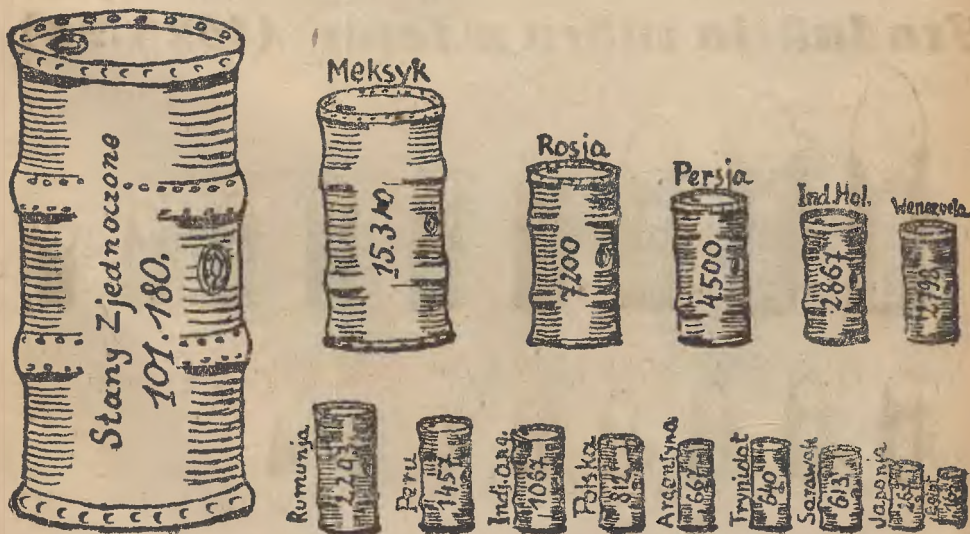 Stany Zjednoczone
101.180.
Meksyk
15.310
Rosja
7200
Persja
4500
Ind.Hol.
2867
Wenezuela
2798
Rumunja
2297
Peru
1457
Ind.ang.
1067
Polska
812
Argentyna
667
Trynidat
640
Sarawak
613
Japonja
267